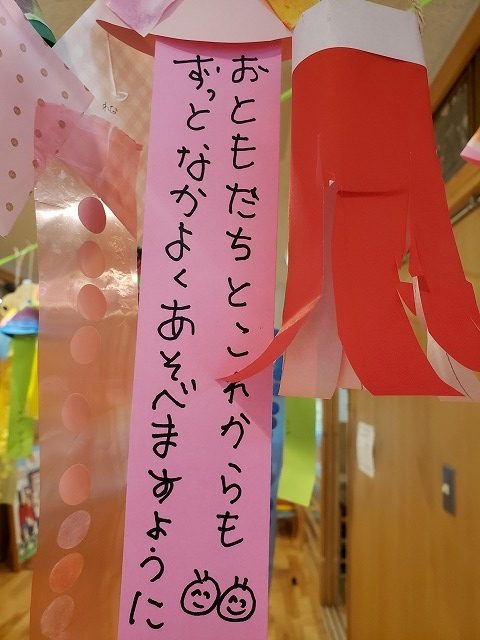 おともだちとこれからも
ずっとなかよくあそべますように